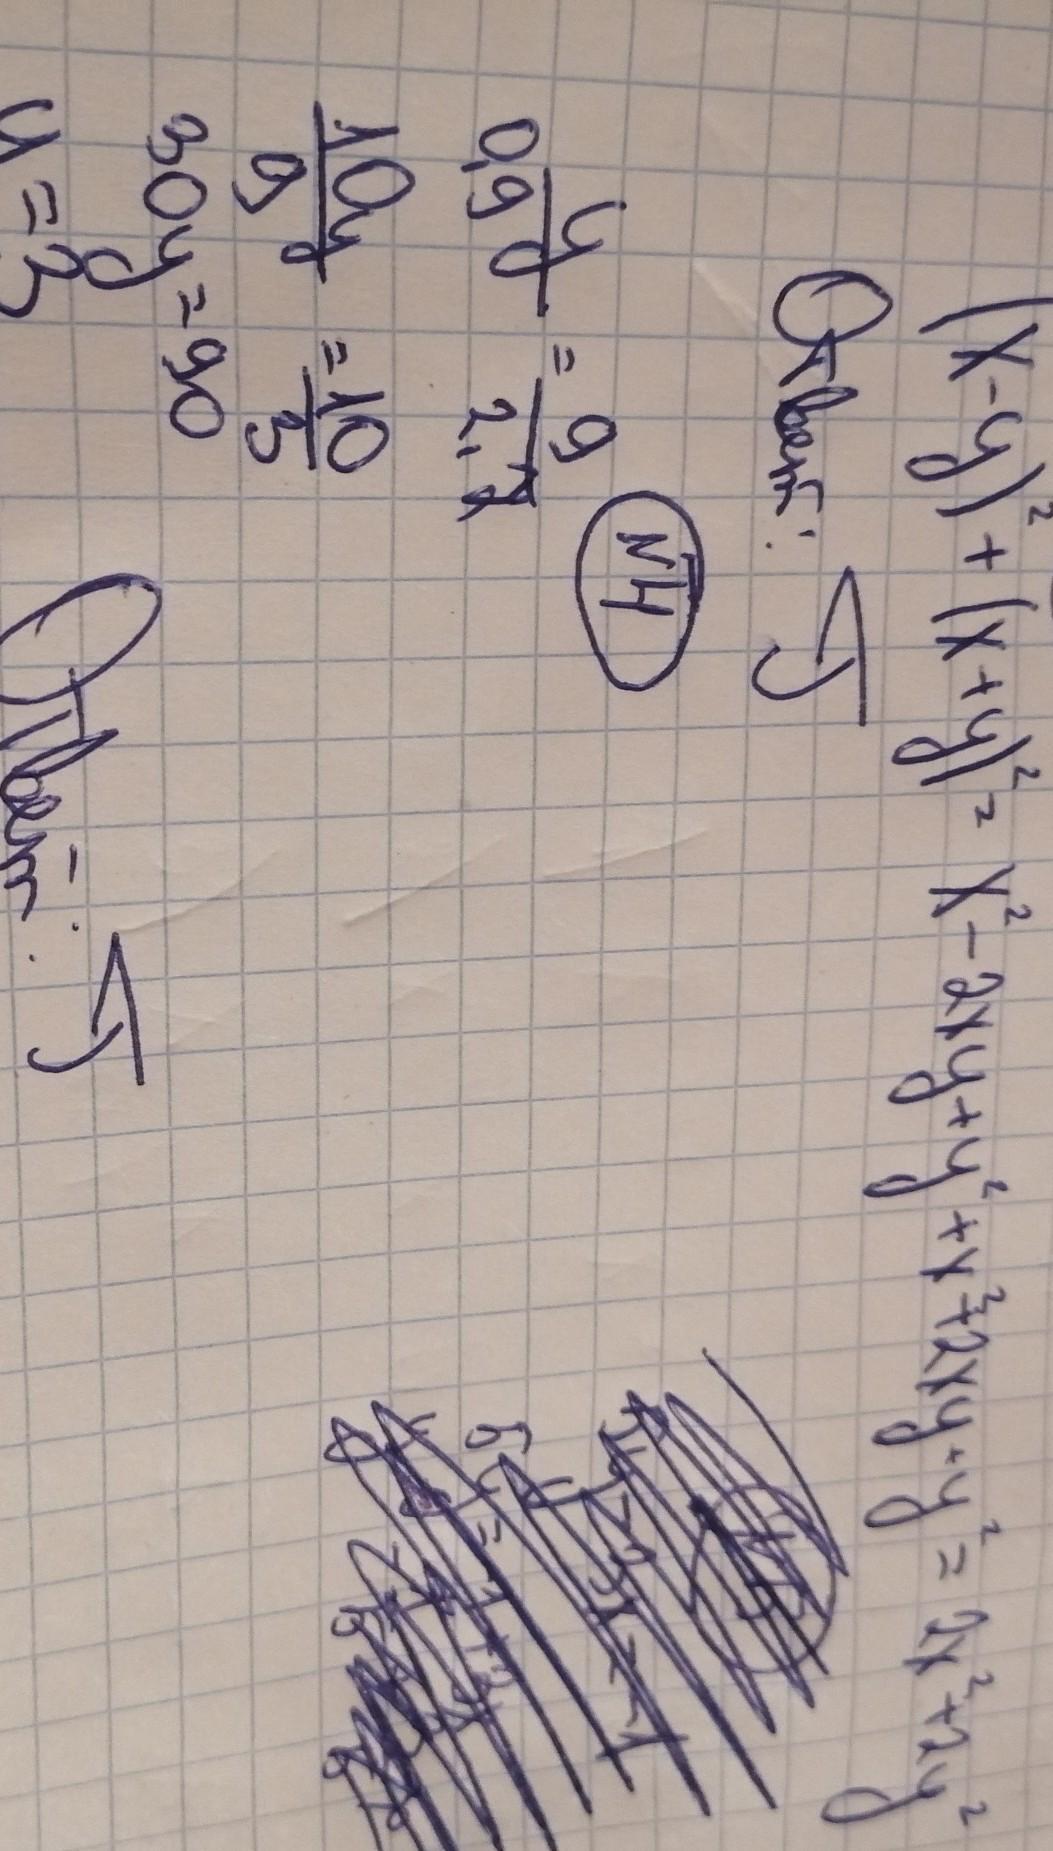 (x-y)² + (x+y)² = x² - 2xy + y² + x² + 2xy + y² = 2x² + 2y²
Ответ: Д
№4
y/0,9 = 9/2,7
10y/9 = 10/3
30y = 90
y = 3
Ответ: Д